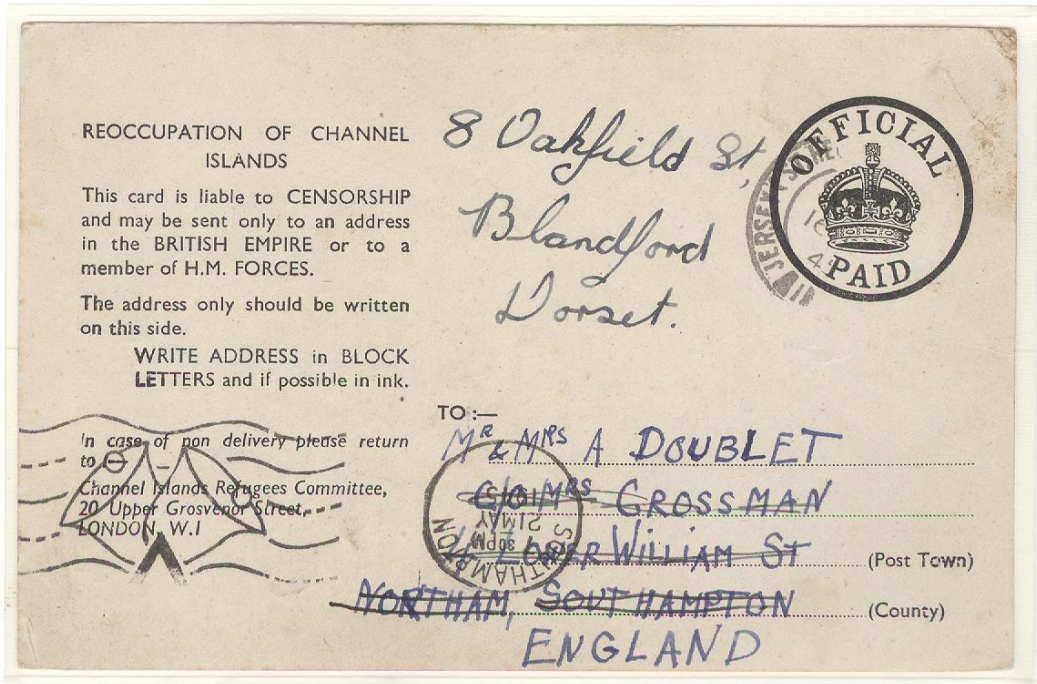 REOCCUPATION OF CHANNEL
ISLANDS
This card is liable to CENSORSHIP
and may be sent only to an address
in the BRITISH EMPIRE or to a
member of H.M. FORCES.
The address only should be written
on this side.
WRITE ADDRESS in BLOCK
LETTERS and if possible in ink.
In case of non delivery please return
to :—
Channel Islands Refugees Committee,
20 Upper Grosvenor Street,
LONDON, W.1
8 Oakfield St,
Blandford
Dorset.
OFFICIAL
PAID
JERSEY
TO :—
MR & MRS A DOUBLET
C/O MRS GROSSMAN
LOWER WILLIAM ST
(Post Town)
NORTHAM, SOUTHAMPTON
(County)
ENGLAND
SOUTHAMPTON
30 PM
21 MAY
1945